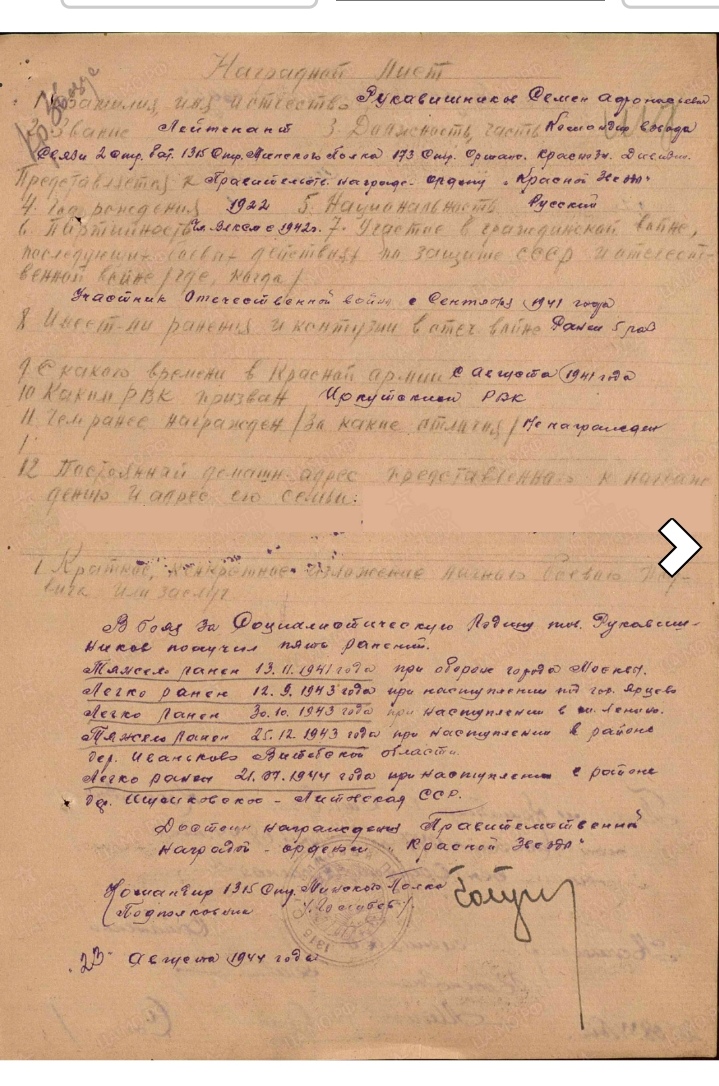 Наградной Лист
1. Фамилия имя и отчество Рукавишников Семен
2. Звание Лейтенант 3. Должность, часть Командир взвода
Связи 2 Стр. бат. 1315 Стр. Минского Полка 173 Стр. Оршанс. Краснозн. Дивизии.
Представляется к Правительств. награде - ордену „Красной Звезды"
4. Год рождения 1922 5. Национальность Русский
6. Партийность с 1942г. 7. Участие в гражданской войне,
последующих боевых действиях по защите СССР и отечест-
венной войне /где, когда/
Участник Отечественной войны с Сентября 1941 года
8 Имеет-ли ранения и контузии в отеч. войне Ранен 5 раз
9. С какого времени в Красной армии с Августа 1941 года
10 Каким РВК призван Иркутским РВК
11. Чем ранее награжден /за какие отличия/ Не награжден
12 Постоянный домашн. адрес представленного к награж-
дению и адрес его семьи:
1 Краткое, конкретное изложение личного боевого под-
вига или заслуг
В боях за Социалистическую Родину тов. Рукавиш-
ников получил пять ранений.
Тяжело ранен 13.11.1941 года при обороне города Москвы.
Легко ранен 12.9.1943 года при наступлении под гор. Ярцево
Легко ранен 30.10.1943 года при наступлении в Ленино.
Тяжело ранен 25.12.1943 года при наступлении в районе
дер. Иваньково Витебской области.
Легко ранен 21.07.1944 года при наступлении в районе
дер. - Литовская ССР.
Достоин награждения Правительственной
наградой - орденом „Красной Звезды"
Командир 1315 Стр. Минского Полка
Подполковник /Голубев/
23 Августа 1944 года